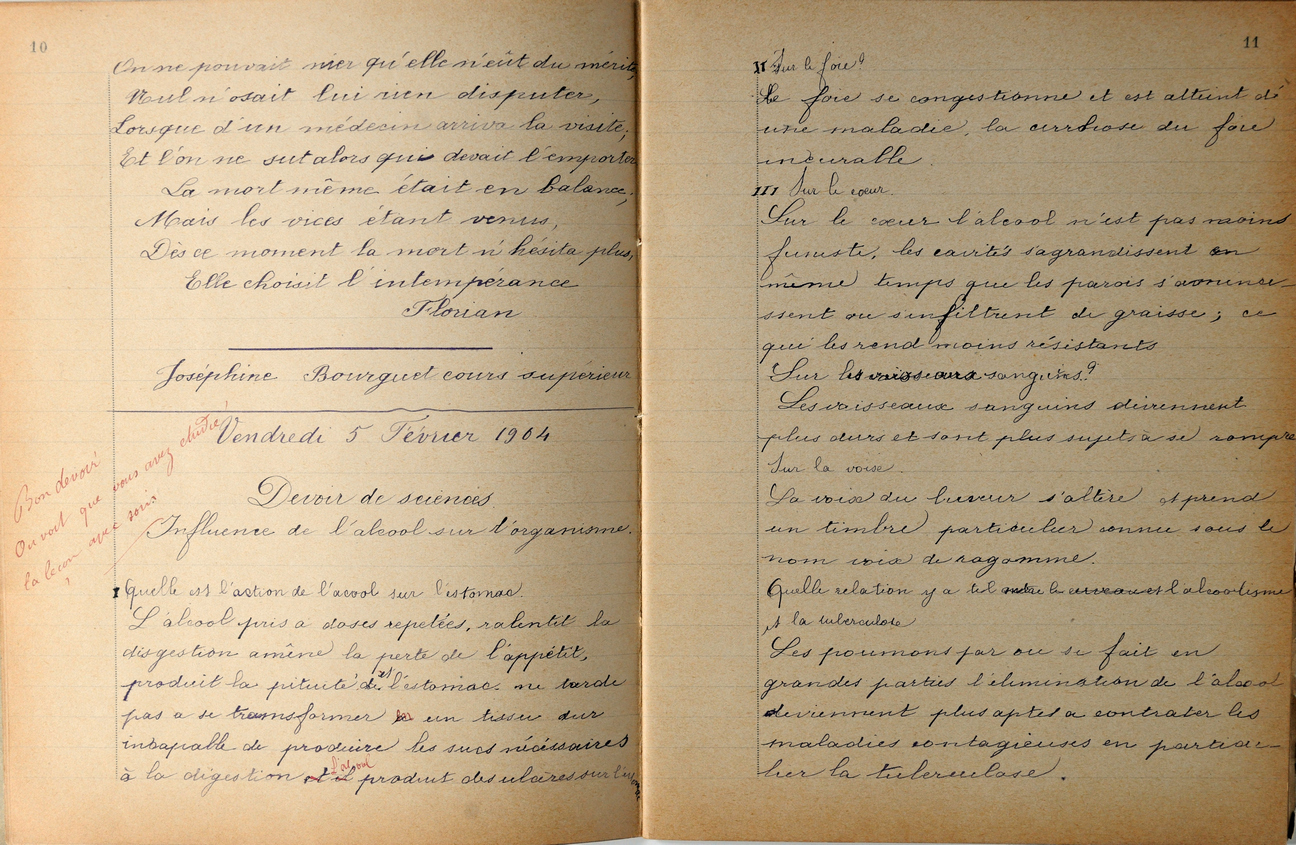 10
On ne pouvait nier qu'elle n'eût du mérite,
Nul n'osait lui rien disputer,
Lorsque d'un médecin arriva la visite,
Et l'on ne sut alors qui devait l'emporter
La mort même était en balance,
Mais les vices étant venus,
Dès ce moment la mort n'hésita plus,
Elle choisit l'intempérance
Florian
Joséphine Bourguet cours supérieur
Vendredi 5 Février 1904
Bon devoir
On voit que vous avez étudié
la leçon avec soin
Devoir de sciences
Influence de l'alcool sur l'organisme.
I Quelle est l'action de l'acool sur l'estomac.
L'alcool pris a doses repetées, ralentit la
disgestion amêne la perte de l'appétit,
produit la pituite de l'estomac. ne tarde
pas a se transformer en un tissu dur
incapable de produire les sucs nécessaires
à la digestion et l'alcool produit des ulcères sur l'estomac
11
II Sur le foie?
Le foie se congestionne et est atteint dé
une maladie, la cirrhose du foie
incurable.
III Sur le cœur.
Sur le cœur l'alcool n'est pas moins
funeste, les cavités s'agrandissent en
même temps que les parois s'amincis-
ssent ou s'infiltrent de graisse; ce
qui les rend moins résistants
Sur les vaisseaux sanguins?
Les vaisseaux sanguins deivennent
plus durs et sont plus sujets à se rompre
Sur la voix.
La voix du buveur s'altère et prend
un timbre particulier connue sous le
nom voix de rogomme.
Quelle relation y a tel entre le cerveau et l'alcoolisme
et la tuberculose
Les poumons par ou se fait en
grandes parties l'élimination de l'alcool
deviennent plus aptes a contrater les
maladies contagieuses en particu-
lier la tuberculose.